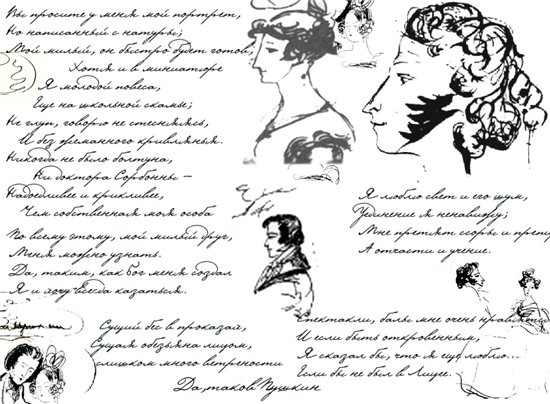 Вы просите у меня мой портрет,
Но написанный с натуры;
Мой милый, он быстро будет готов,
Хотя и в миниатюре
Я молодой повеса,
Еще на школьной скамье;
Не глуп, говорю не стесняясь,
И без жеманного кривлянья.
Никогда не было болтуна,
Ни доктора Сорбонны -
Надоедливее и крикливее,
Чем собственная моя особа
По всему этому, мой милый друг,
Меня можно узнать.
Да, таким, как бог меня создал
Я и хочу всегда казаться.
Я люблю свет и его шум,
Уединение я ненавижу;
Мне претят ссоры и
А отчасти и учение.
Сущий бес в проказах,
Сущая обезьяна лицом,
слишком много ветрености
Да, таков Пушкин
Спектакли, балы мне очень нравятся
И если быть откровенным,
Я сказал бы, что я еще люблю...
Если бы не был в Лицее.